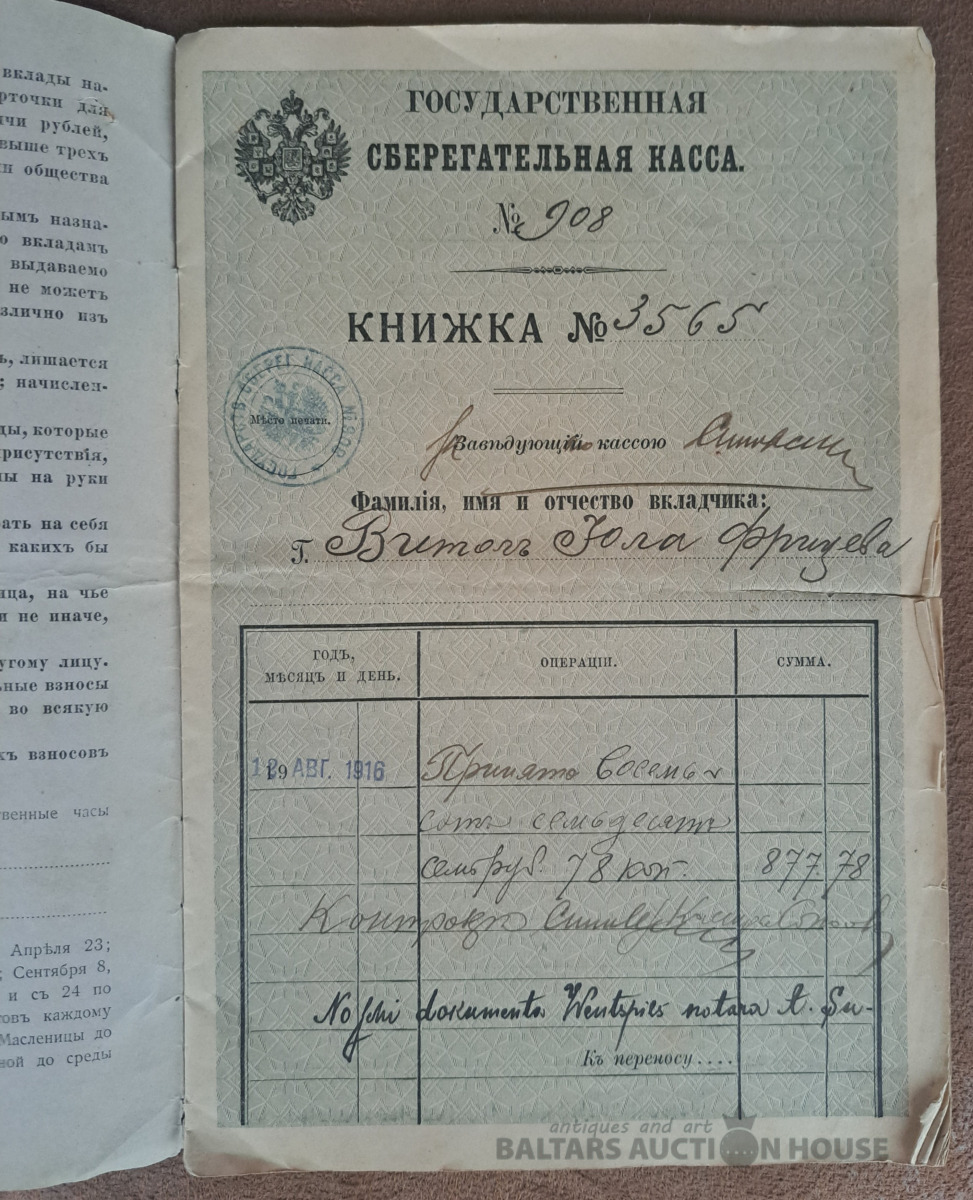 вклады на-
рточки для
ячи рублей,
выше трехъ
ли общества
ымъ назна-
о вкладамъ
выдаваемо
не можетъ
злично изъ
ь, лишается
; начислен-
ды, которые
рисутствія,
ы на руки
ать на себя
какихъ бы
ица, на чье
и не иначе,
угому лицу.
ьные взносы
во всякую
хъ взносовъ
твенные часы
Апрѣля 23;
; Сентября 8,
и съ 24 по
товъ каждому
Масленицы до
ной до среды
ГОСУДАРСТВЕННАЯ
СБЕРЕГАТЕЛЬНАЯ КАССА.
№ 908
КНИЖКА № 3565
ГОСУДАРСТВ. СБЕРЕГ. КАССА № 908
Мѣсто печати.
Завѣдующій кассою
Фамилія, имя и отчество вкладчика:
Г. Витолъ Юла Фрицева
ГОДЪ, МѢСЯЦЪ И ДЕНЬ.
ОПЕРАЦІИ.
СУММА.
19 АВГ. 1916 Принято восемь
сотъ семьдесятъ
семь руб. 78 коп. 877 78
No schi dokumenta Wentspils notara A. Su-
Къ переносу....
antiques and art
BALTARS AUCTION HOUSE